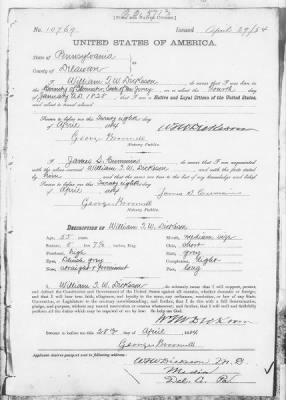 [FORM FOR NATIVE CITIZEN.]
No. 10769 Issued April 29/84
UNITED STATES OF AMERICA.
State of Pennsylvania
County of Delaware
I William T. W. Dickeson do swear that I was born in the
fourth day of
January A.D. 1828 that I am a Native and Loyal Citizen of the United States,
and about to travel abroad.
Sworn to before me this twenty eighth day
of April 1884
George Broomall
Notary Public.
Wm Dickeson
I James S. Cummins do swear that I am acquainted
with the above named William T. W. Dickeson and with the facts stated
by him, and that the same are true to the best of my knowledge and belief.
Sworn to before me this twenty eighth day
of April 1884
James S. Cummins
George Broomall
Notary Public.
DESCRIPTION OF William T. W. Dickeson
Age, 55 years. Mouth, medium size
Stature, 5 feet 7½ inches, Eng. Chin, short
Forehead, high Hair, gray
Eyes, bluish gray Complexion, light
Nose, straight & prominent Face, long
I, William T. W. Dickeson do solemnly swear that I will support, protect
and defend the Constitution and Government of the United States against all enemies, whether domestic or foreign;
and that I will bear true faith, allegiance, and loyalty to the same, any ordinance, resolution, or law of any State,
Convention, or Legislature to the contrary notwithstanding; and further, that I do this with a full determination,
pledge, and purpose, without any mental reservation or evasion whatsoever; and further, that I will well and faithfully
perform all the duties which may be required of me by law. So help me God.
Sworn to before me this 28th April 1884.
George Broomall
Applicant desires passport to be sent to following address:
W.T.W. Dickeson M.D.
Media
Del. Co. Pa.